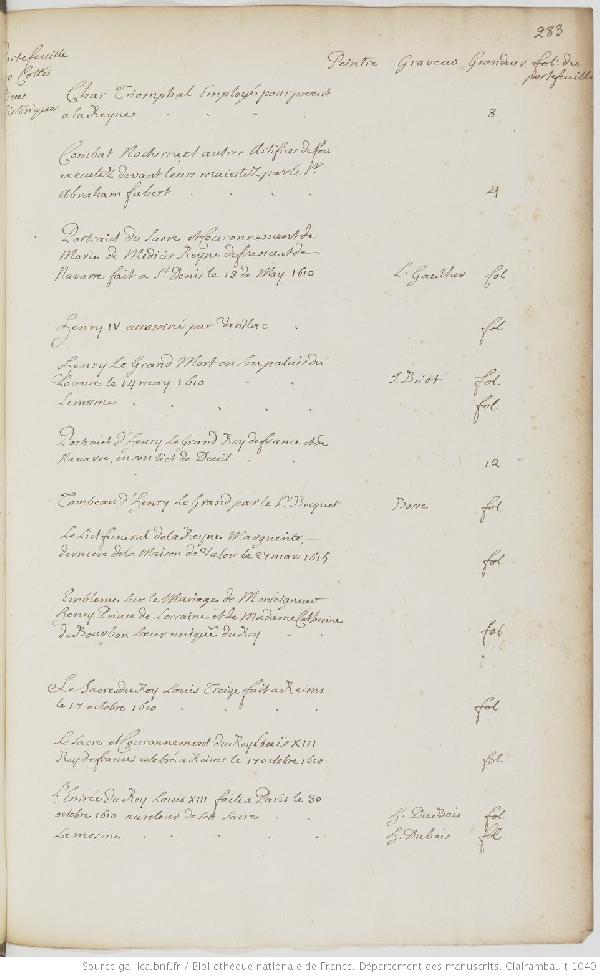 283
Portefeuille
Peintre Graveur Grandeur fol. du
portefeuille
Char Triomphal Employé pour present
a la Reyne . . . . 3
Combat Nocturne et autres Artifices de feu
executéz devant leurs majestéz par le Sr.
Abraham fabert . . . 4
Portrait du Sacre et Couronnement de
Marie de Medicis Reyne de france et de
Navarre fait a St Denis le 13 de May 1610 L. Gaultier fol
Henry IV assassiné par . fol
Henry Le Grand Mort en Son palais du
Louvre le 14 may 1610 J. Briot fol.
Le mesme . . . . fol.
Portrait d'Henry Le Grand Roy de france et de
Navarre, en son lict de Deuil . . 12
Tombeau d'Henry Le Grand par le Sr. Bocquet fol
Le Lit funeral de la Reyne Marguerite,
derniere de la Maison de Valois le 27 mars 1615 fol
Embleme sur le Mariage de Monseigneur
Henry Prince de Lorraine et de Madame Catherine
de Bourbon sœur unique du Roy . . fol
Le Sacre du Roy Louis Treize fait a Reims
le 17 octobre 1610 . . . . fol
Le Sacre et Couronnement du Roy Louis XIII
Roy de france celebré a Reims le 17 octobre 1610 fol
L'Entrée du Roy Louis XIII faite a Paris le 30
octobre 1610 au retour de son Sacre . . H. Dubois fol
La mesme . . . . H. Dubois fol
Source gallica.bnf.fr / Bibliothèque nationale de France. Département des manuscrits. Clairambault 1040